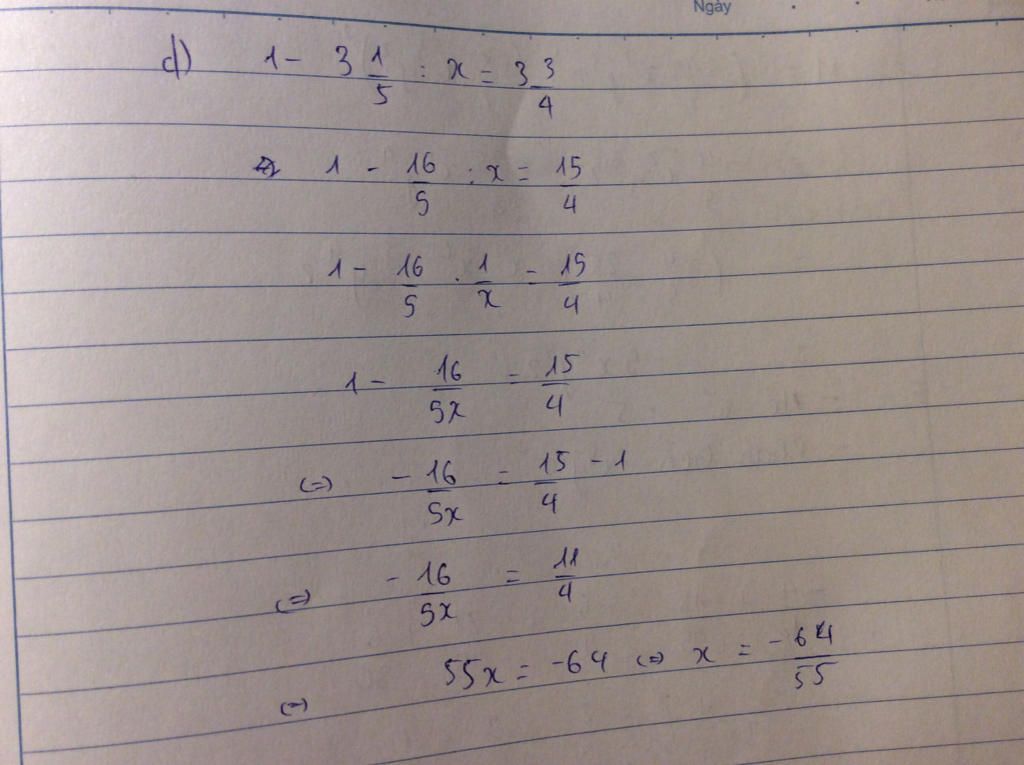 Ngày
d) 1 - 3 1/5 : x = 3 3/4
⇔ 1 - 16/5 : x = 15/4
1 - 16/5 . 1/x = 15/4
1 - 16/5x = 15/4
(=) - 16/5x = 15/4 - 1
(=) - 16/5x = 11/4
(=) 55x = -64 (=) x = -64/55